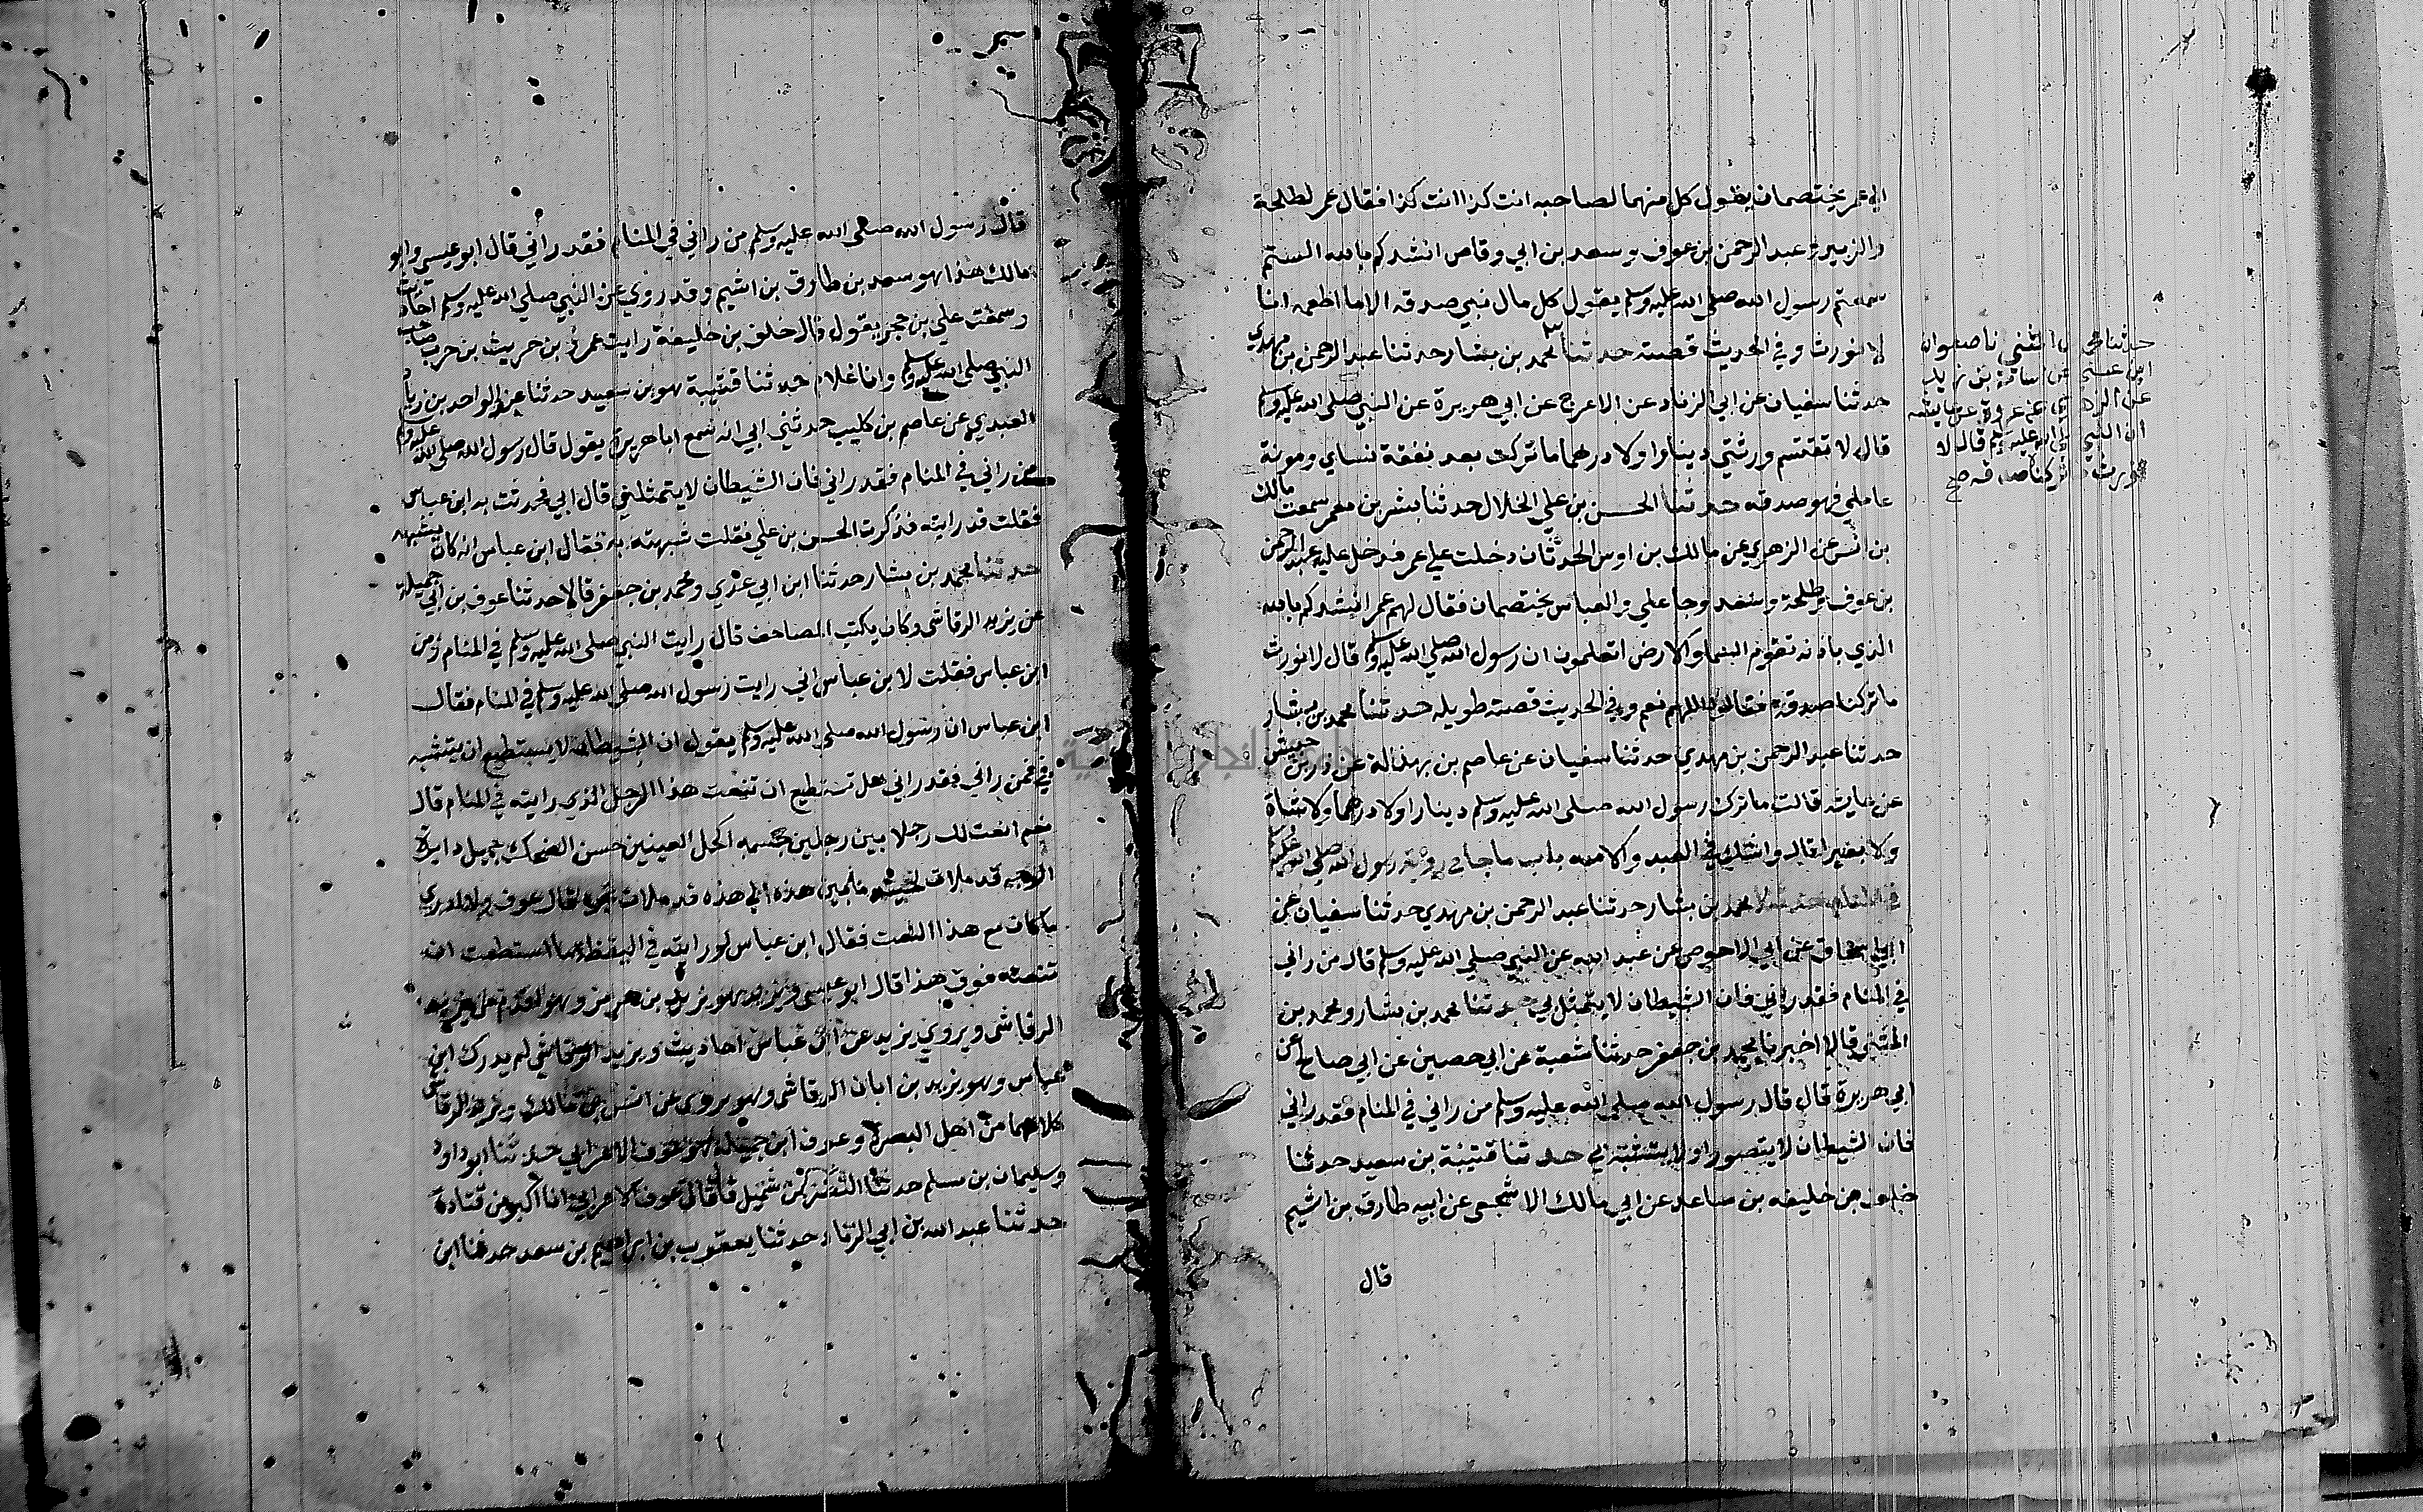 الي عمر يختصمان يقول كل منهما لصاحبه انت كذا انت كذا فقال عمر لطلحة
والزبير وعبد الرحمن بن عوف وسعد بن ابي وقاص انشدكم بالله السمتم
سمعتم رسول الله صلى الله عليه وسلم يقول كل مال نبي صدقة الا ما اطعمه انا
لا نورث وفي الحديث قصة حدثنا محمد بن بشار حدثنا عبد الرحمن بن مهدي
حدثنا سفيان عن ابي الزناد عن الاعرج عن ابي هريرة عن النبي صلى الله عليه وسلم
قال لا تقتسم ورثتي دينارا ولا درهما ما تركت بعد نفقة نساي ومونة
عاملي فهو صدقه حدثنا الحسن بن علي الخلال حدثنا بشر بن معمر سمعت مالك
بن انس عن الزهري عن مالك بن اوس الحدثان دخلت علي عمر فدخل عليه عبد الرحمن
بن عوف وطلحة وسعد وجا علي والعباس يختصمان فقال لهم عمر انشدكم بالله
الذي باذنه تقوم السما والارض اتعلمون ان رسول الله صلى الله عليه وسلم قال لا نورث
ما تركنا صدقة فقالوا اللهم نعم وفي الحديث قصة طويله حدثنا محمد بن بشار
حدثنا عبد الرحمن بن مهدي حدثنا سفيان عن عاصم بن بهدلة عن زر بن حبيش
عن عايشه قالت ما ترك رسول الله صلى الله عليه وسلم دينارا ولا درهما ولا شاة
ولا بعيرا قال واشك في العبد والامه باب ما جا في روية رسول الله صلى الله عليه وسلم
في المنام حدثنا محمد بن بشار حدثنا عبد الرحمن بن مهدي حدثنا سفيان عن
ابي اسحاق عن ابي الاحوص عن عبد الله عن النبي صلى الله عليه وسلم قال من راني
في المنام فقد راني فان الشيطان لا يتمثل بي حدثنا محمد بن بشار ومحمد بن
المثنى قالا اخبرنا محمد بن جعفر حدثنا شعبة عن ابي حصين عن ابي صالح عن
ابي هريرة قال قال رسول الله صلى الله عليه وسلم من راني في المنام فقد راني
فان الشيطان لا يتصور او لا يتشبه بي حدثنا قتيبة بن سعيد حدثنا
خلف بن خليفه بن صاعد عن ابي مالك الاشجعي عن ابيه طارق بن اشيم
قال
حدثنا محمد بن المثني نا صفوان
ابن عيسى عن اسامة بن زيد
عن الزهري عن عروة عن عايشه
ان النبي صلى الله عليه وسلم قال لا
نورث ما تركنا صدقه صح
قال رسول الله صلى الله عليه وسلم من راني في المنام فقد راني قال ابو عيسى وابو
مالك هذا هو سعد بن طارق بن اشيم وقد روي عن النبي صلى الله عليه وسلم احاديث
وسمعت علي بن حجر يقول قال خلف بن خليفة رايت عمرو بن حريث بن حرب صاحب
النبي صلى الله عليه وسلم وانا غلام حدثنا قتيبة هو بن سعيد حدثنا عبد الواحد بن زياد
العبدي عن عاصم بن كليب حدثني ابي انه سمع ابا هريرة يقول قال رسول الله صلى الله عليه وسلم
من راني في المنام فقد راني فان الشيطان لا يتمثلني قال ابي فحدثت به ابن عباس
فقلت قد رايته فذكرت الحسن بن علي فقلت شبهته به فقال ابن عباس انه كان يشبهه
حدثنا محمد بن بشار حدثنا ابن ابي عدي ومحمد بن جعفر قالا حدثنا عوف بن ابي جميلة
عن يزيد الرقاشي وكان يكتب المصاحف قال رايت النبي صلى الله عليه وسلم في المنام زمن
ابن عباس فقلت لابن عباس اني رايت رسول الله صلى الله عليه وسلم في المنام فقال
ابن عباس ان رسول الله صلى الله عليه وسلم يقول ان الشيطان لا يستطيع ان يتشبه
بي فمن راني فقد راني هل تستطيع ان تنعت هذا الرجل الذي رايته في المنام قال
نعم انعت لك رجلا بين رجلين جسمه اكحل العينين حسن الضحك جميل داير
الوجه قد ملات لحيته ما بين هذه الي هذه قد ملات نحره قال عوف ولا ادري
ما كان مع هذا النعت فقال ابن عباس لو رايته في اليقظة ما استطعت ان
تنعته فوق هذا قال ابو عيسى ويزيد هو يزيد بن هرمز وهو اقدم من يزيد
الرقاشى ويروي يزيد عن ابن عباس احاديث ويزيد الرقاشي لم يدرك ابن
عباس وهو يزيد بن ابان الرقاشى وهو يروي عن انس بن مالك ويزيد الرقاشي
كلاهما من اهل البصرة وعوف ابن جميله هو عوف الاعرابي حدثنا ابو داود
وسليمان بن مسلم حدثنا النضر بن شميل قال قال عوف الاعرابي انا اكبر من قتادة
حدثنا عبد الله بن ابي الزناد حدثنا يعقوب بن ابراهيم بن سعد حدثنا ابن